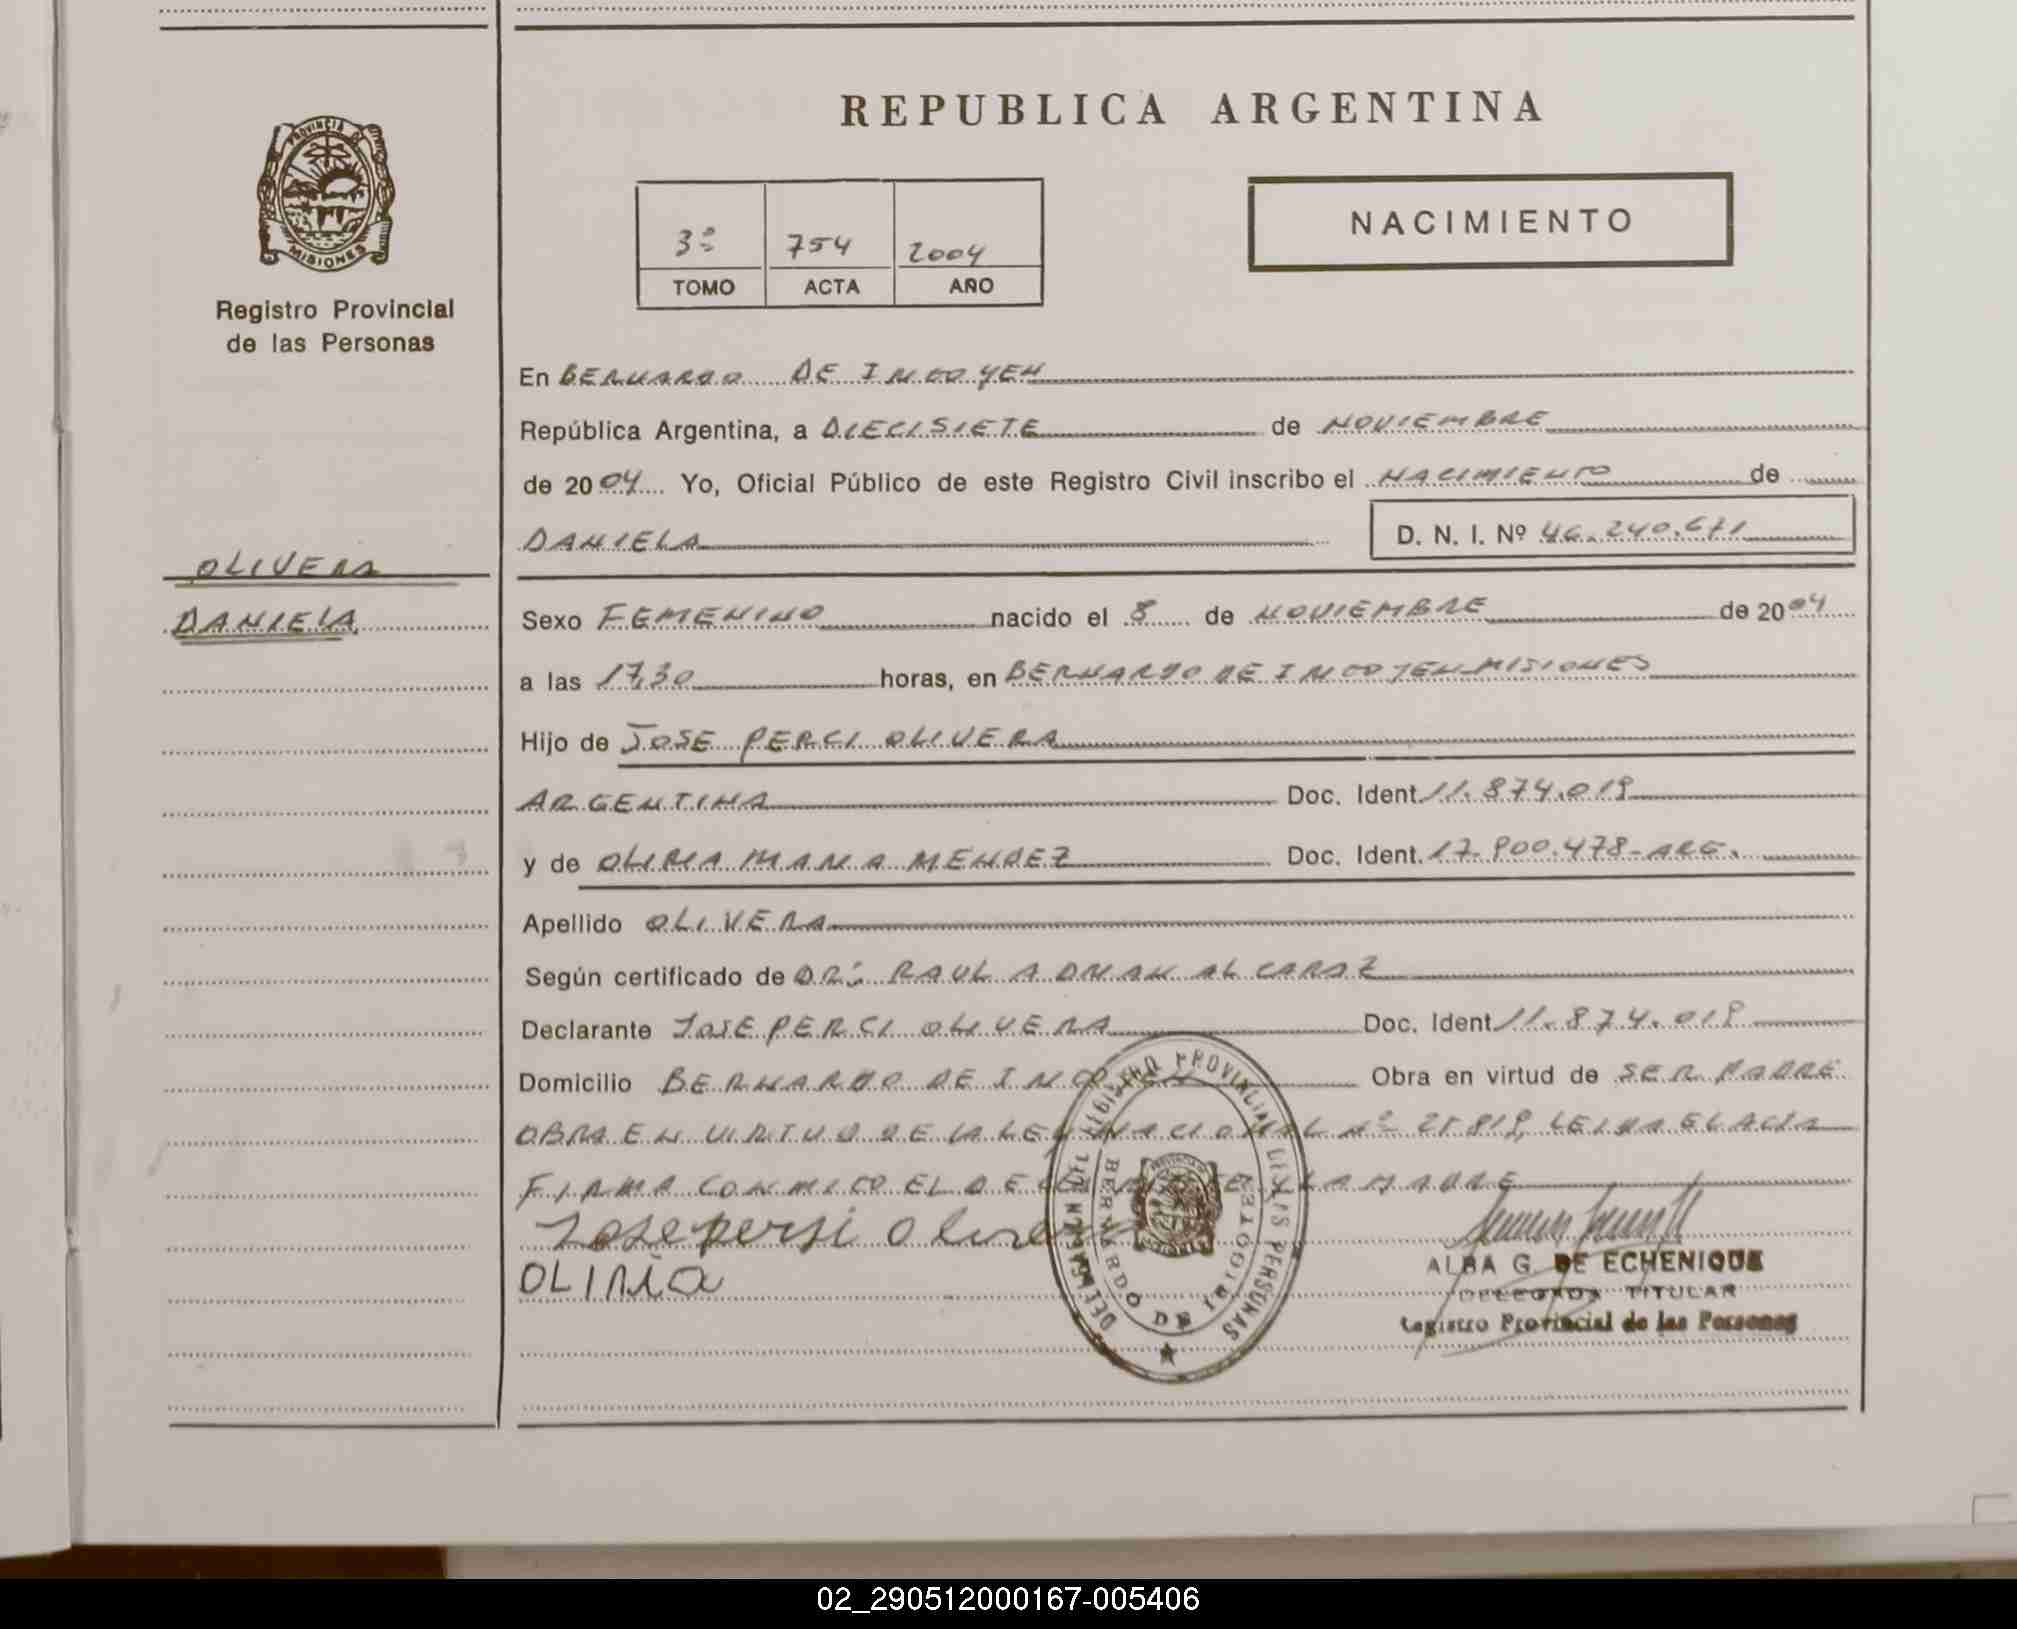 REPUBLICA ARGENTINA
PROVINCIA DE
MISIONES
Registro Provincial
de las Personas
3º 754 2004
TOMO ACTA AÑO
NACIMIENTO
En BERNARDO DE IRIGOYEN
República Argentina, a DIECISIETE de NOVIEMBRE
de 2004 Yo, Oficial Público de este Registro Civil inscribo el NACIMIENTO de
DANIELA D. N. I. Nº 46.240.671
OLIVERA
DANIELA
Sexo FEMENINO nacido el 8 de NOVIEMBRE de 2004
a las 17,30 horas, en BERNARDO DE IRIGOYEN MISIONES
Hijo de JOSE PERCI OLIVERA
ARGENTINA Doc. Ident. 11.874.019
y de OLIRIA MARIA MENDEZ Doc. Ident. 17.900.478-ARG.
Apellido OLIVERA
Según certificado de DR: RAUL ADRIAN ALCARAZ
Declarante JOSE PERCI OLIVERA Doc. Ident 11.874.019
Domicilio BERNARDO DE IRIGOYEN Obra en virtud de SER PADRE
OBRA EN VIRTUD DE LA LEY NACIONAL Nº 25.819, LEIDA EL ACTA
FIRMA CONMIGO EL DE Y LA MADRE
Jose persi Olivera
OLIRIA
DELEGACION DEL REGISTRO PROVINCIAL DE LAS PERSONAS
BERNARDO DE IRIGOYEN
ALBA G. DE ECHENIQUE
DELEGADA TITULAR
Registro Provincial de las Personas
02_290512000167-005406